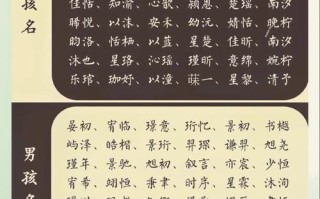 孩名
佳恬、知渝、歆颜、颖恩、楚瑶、南汐
晞悦、以沫、安禾、幼沅、婧恬、晚柠
昀洛、恬栖、以蓝、星楚、佳昕、南汐
沐也、星珞、沁瑶、瑾昕、意绵、婉柠
乐琯、珈妤、以潼、菻一、星黎、清予
男孩名
晏初、宥临、璟意、珩忆、景初、书樾
屿泽、皓樘、景珩、羿璟、谦翌、旭尧
瑾年、景驰、旭初、叙言、亦宸、少恒
宥希、翊恒、秉聿、时序、星霖、沐洵